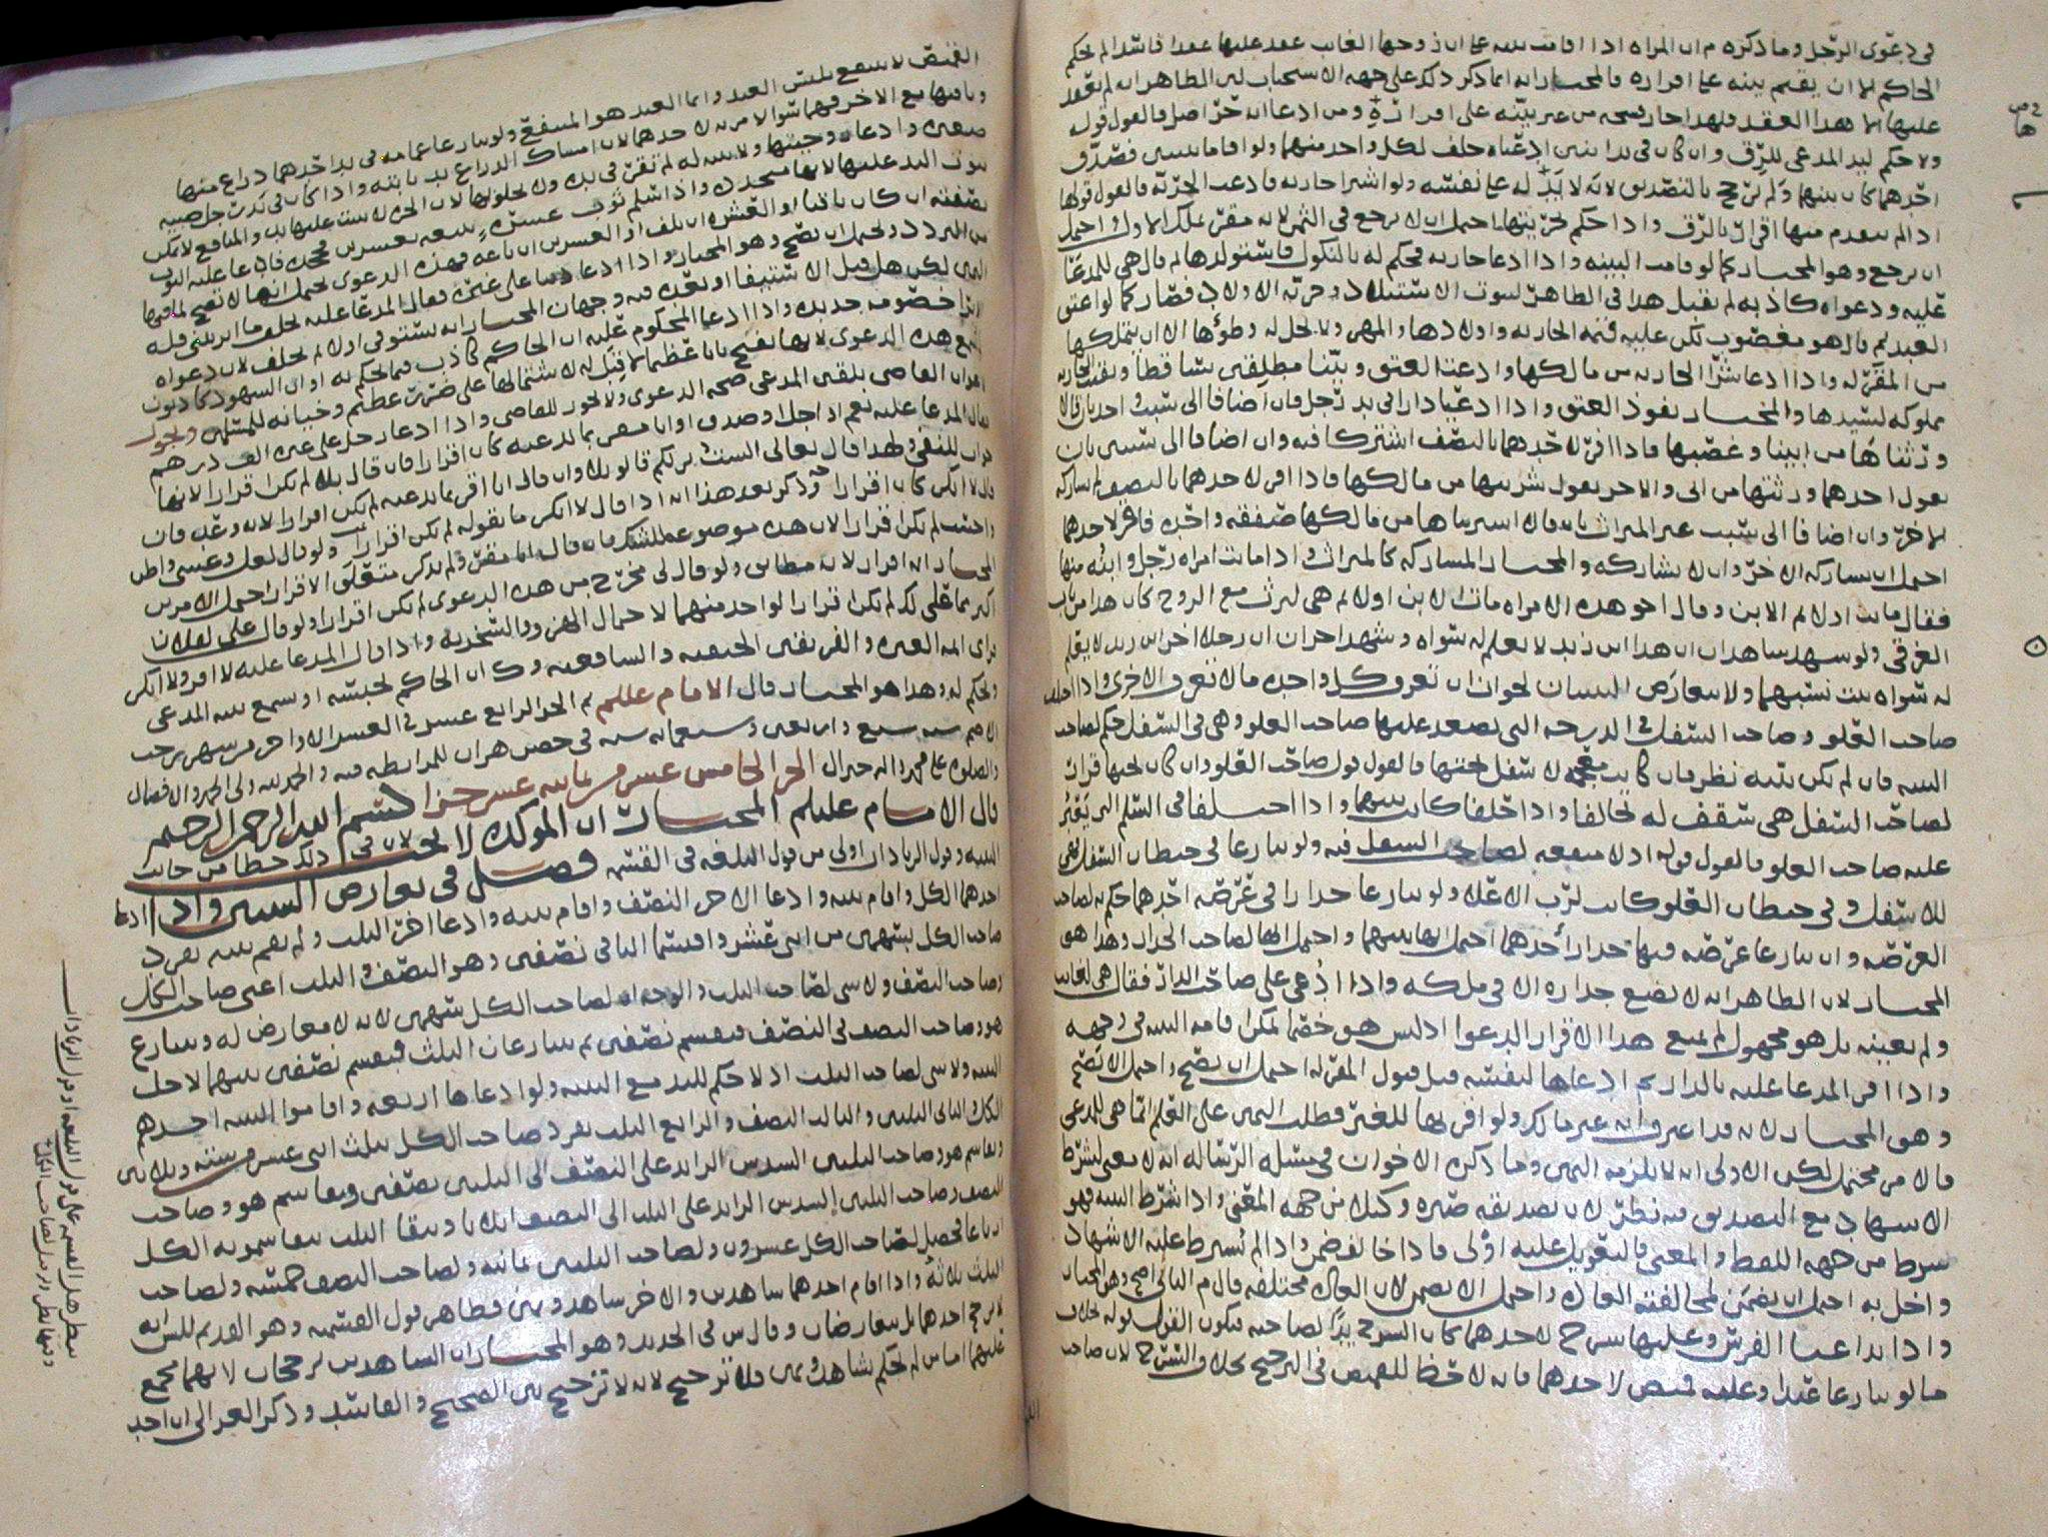 في دعوى الرجل وما ذكره م ان المراه اذا اقامت بينه على ان زوجها الغايب عقد عليها عقدا فاسدا لم يحكم
الحاكم لا ان يقيم بينه على اقراره فالمختار انه انما ذكر ذلك على جهه الاستحباب لان الظاهر انه لم يعقد
عليها الا هذا العقد فلهذا جاز فسخه من غير بينه على اقراره ومن ادعا انه حر اصل فالقول قوله
ولا حكم ليد المدعي للرق وان كان في يد اثنين ادعياه حلف لكل واحد منهما ولو اقاما بينتين فصدق
احدهما كان بينهما ولم ترجح بالتصديق لانه لا يد له على نفسه ولو اشترا جاريه فادعت الحريه فالقول قولها
اذا لم يتقدم منها اقرار بالرق واذا حكم بحريتها احتمل ان لا يرجع في الثمن لانه مقر بملك الاول واحتمل
ان يرجع وهو المختار كما لو قامت البينه واذا ادعا جاريه فحكم له بالنكول فاستولدها ثم قال هي للمدعا
عليه ودعواه كاذبه لم يقبل هذا في الظاهر لثبوت الاستيلاد وحريه الاولاد فصار كما لو اعتق
العبد ثم قال هو مغصوب لكن عليه قيمه الجاريه واولادها والمهر ولا يحل له وطؤها الا ان يتملكها
من المقر له واذا ادعا شرا الجاريه من مالكها وادعت العتق وبينا مطلقتين تساقطا وبقيت الجاريه
مملوكه لسيدها والمختار نفوذ العتق واذا ادعيا دارا في يد رجل فان اضافا الى سبب واحد بان قالا
ورثناها من ابينا وغصبها فاذا اقر لاحدهما بالنصف اشتركا فيه وان اضافا الى سببين بان
يقول احدهما ورثتها من ابي والاخر يقول شريتها من مالكها فاذا اقر لاحدهما بالنصف لم يشاركه
الاخر وان اضافا الى سبب غير الميراث بان قالا اشتريناها من مالكها صفقه واحده فاقر لاحدهما
احتمل ان يشاركه الاخر وان لا يشاركه والمختار المشاركه كالميراث واذا ماتت امراه رجل وابنه منها
فقال ماتت اولا ثم الابن وقال اخو هذه الامراه مات الابن اولا ثم هي ليرث مع الزوج كان هذا من باب
الغرقى ولو شهد شاهدان ان هذا ابن زيد لا يعلم له سواه وشهد اخران ان رجلا اخر ابن زيد لا يعلم
له سواه ثبت نسبهما ولا يتعارض البينتان لجواز ان تعرف كل واحده ما لا تعرف الاخرى واذا اختلف
صاحب العلو وصاحب السفل في الدرجه التي يصعد عليها صاحب العلو وهي في السفل حكم لصاحب
البينه فان لم تكن بينه نظر فان كانت لا سفل تحتها فالقول قول صاحب العلو وان كان تحتها قرار
لصاحب السفل هي سقف له تحالفا واذا حلفا كانت بينهما واذا اختلفا في السلم الذي يعبر
عليه صاحب العلو فالقول قوله اذ لا منفعه لصاحب السفل فيه ولو تنازعا في حيطان السفل فهي
للاسفل وفي حيطان العلو كانت لرب الاعلا ولو تنازعا جدارا في عرصه احدهما حكم به لصاحب
العرصه وان تنازعا عرصه فيها جدار احدهما احتمل انها بينهما واحتمل انها لصاحب الجدار وهذا هو
المختار لان الظاهر انه لا يضع جداره الا في ملكه واذا ادعي على صاحب الدار فقال هي لغايب
ولم يعينه بل هو مجهول لم يمنع هذا الاقرار الدعوا اذ ليس هو خصما تمكن اقامه البينه في وجهه
واذا اقر المدعا عليه بالدار ثم ادعاها لنفسه قبل قبول المقر له احتمل ان يصح واحتمل الا تصح
وهو المختار لانه قد اعترف انه غير مالك ولو اقر بها للغير فطلب اليمين على العلم انما هي للمدعي
فالامر محتمل لكن الاولى انه لا يلزمه اليمين وما ذكره الاخوان في مسله الرساله انه لا معنى لشرط
الاشهاد مع التصديق فيه نظر لان تصديقه صيره وكيلا من جهه المعنى واذا شرط البينه فهو
شرط من جهه اللفظ والمعنى فالتعويل عليه اولى فاذا خالف ضمن واذا لم يشرط عليه الاشهاد
واخل به احتمل ان يضمن لمخالفته العاده واحتمل الا يضمن لان العاده مختلفه قال م الثاني اصح وهو المختار
واذا تداعيا الفرس وعليها سرج لاحدهما كان السرج يدا لصاحبه فيكون القول قوله بخلاف
ما لو تنازعا عبدا وعليه قميص لاحدهما فانه لا حظ للقميص في الترجيح بخلاف السرج لان صاحب
القميص لا ينتفع بلبس العبد وانما العبد هو المنتفع ولو تنازعا عمامه في يد احدهما ذراع منها
وباقيها مع الاخر فهما سوا لا مزيه لاحدهما لان امساك الذراع يد ثابته واذا كان في يد رجل صبيه
صغيره وادعا زوجيتها ولا بينه له لم تقر في يده ولا يخلو بها لان الحره لا يثبت عليها يد والمنافع لا يمكن
ثبوت اليد عليها لانها ستحدث واذا سلم ثوب عشره يبيعه بعشرين فجحده فادعا عليه الثوب
بصفته ان كان باقيا او العشره ان تلف او العشرين ان باعه فهذه الدعوى تحتمل انها لا تصح لما فيها
من التردد ويحتمل ان تصح وهو المختار واذا ادعا دينا على غيره فقال المدعا عليه يحلف ما ابريني فله
اليمين لكن هل قبل الاستيفا او بعده فيه وجهان المختار انه يستوفي اولا ثم يحلف لان دعواه
الابرا خصومه جديده واذا ادعا المحكوم عليه ان الحاكم كاذب فيما حكم به او ان الشهود كاذبون
لم تسمع هذه الدعوى لانها تفتح بابا عظيما لا قبل له لاشتمالها على ضرر عظيم وخيانه للمسلمين ويجوز
القاضي يلقن المدعي صحه الدعوى ولا يجوز للقاضي واذا ادعا رجل على غيره الف درهم
فقال المدعا عليه نعم او اجل او صدق او انا مقر بما تدعيه كان اقرارا فان قال بلى لم تكن اقرارا لانها
جواب للنفي ولهذا قال تعالى الست بربكم قالوا بلى وان قال انا اقر بما تدعيه لم تكن اقرارا لانه وعد فان
قال لا انكر كان اقرارا وذكر بعد هذا انه اذا قال لا انكر ما تقوله لم تكن اقرارا ولو قال لعل وعسى واظن
واحسب لم تكن اقرارا لان هذه موضوعه للشك فان قال انا مقر ولم يذكر متعلق الاقرار احتمل الامرين
المختار انه اقرار لانه مطابق ولو قال لي مخرج من هذه الدعوى لم تكن اقرارا ولو قال على لفلان
اكثر مما علي لك لم تكن اقرارا لواحد منهما لاحتمال الهزو والسخريه واذا قال المدعا عليه لا اقر ولا انكر
فراي ايمه العتره والفريقين الحنفيه والشافعيه وك ان الحاكم يحبسه او يسمع بينه المدعي
ويحكم له وهذا هو المختار قال الامام عليلم تم الجز الرابع عشر في العشر الاواخر من شهر رجب
الاصم سنه سبع واربعين وسبعمايه سنه في حصن هران للمرابطه فيه والحمد لله ولي الحمد والافضال
والصلوه على محمد واله خير ال الجز الخامس عشر من ثمانيه عشر جزا بسم الله الرحمن الرحيم
قال الامام عليلم المختار ان الموكل لا لان في ذلك حطا من جانب
البينه وقول الزيادات اولى من قول البلغه في القسمه فصل في تعارض البينتين واذا ادعا
احدهما الكل واقام بينه وادعا الاخر النصف واقام بينه وادعا اخر الثلث ولم يقم بينه تفرد
صاحب الكل بسهمين من اثني عشر واقتسما الباقي نصفين وهو النصف والثلث اعني صاحب الكل
وصاحب النصف ولا شي لصاحب الثلث والوجه ان لصاحب الكل سهمين لانه لا معارض له وتنازع
هو وصاحب النصف في النصف فيقسم نصفين ثم يتنازعان الثلث فيقسم نصفين بينهما لاجل
البينه ولا شي لصاحب الثلث اذ لا حكم لليد مع البينه ولو ادعاها اربعه واقاموا البينه احدهم
الكل الثاني الثلثين والثالث النصف والرابع الثلث تفرد صاحب الكل بثلث اثني عشر من سته وثلاثين
وتقاسم هو وصاحب الثلثين السدس الزايد على النصف الى الثلثين نصفين وتقاسم هو وصاحب
النصف وصاحب الثلثين السدس الزايد على الثلث الى النصف اثلاثا ويبقا الثلث يتقاسمونه الكل
ارباعا فحصل لصاحب الكل عشرون ولصاحب الثلثين ثمانيه ولصاحب النصف خمسه ولصاحب
الثلث ثلاثه واذا اقام احدهما شاهدين والاخر شاهد ويمين فظاهر قول القسميه وهو القديم للش انه
لا يرجح احدهما بل يتعارضان وقال ش في الجديد وهو المختار ان الشاهدين يرجحان لانهما مجمع
عليهما اما من لم يحكم بشاهد ويمين فلا ترجيح لانه لا ترجيح بين الصحيح والفاسد وذكر الغزالي ان احد